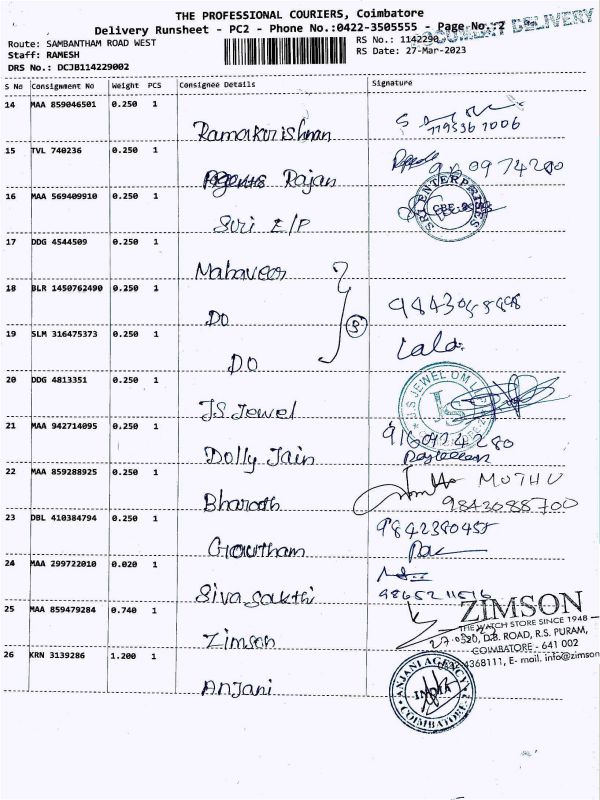 THE PROFESSIONAL COURIERS, Coimbatore
Delivery Runsheet - PC2 - Phone No.:0422-3505555 - Page No.:2
DOCUMENT DELIVERY
Route: SAMBANTHAM ROAD WEST
RS No.: 1142290
Staff: RAMESH
RS Date: 27-Mar-2023
DRS No.: DCJB114229002
S No Consignment No Weight PCS Consignee Details Signature
14 MAA 859046501 0.250 1
Ramakrishnan
15 TVL 740236 0.250 1
Rajan
16 MAA 569409910 0.250 1
SRI ENTERPRISES
Sri E/P
17 DDG 4544509 0.250 1
Mahaveer
18 BLR 1450762490 0.250 1
DO
3
19 SLM 316475373 0.250 1
Lala
DO
20 DDG 4813351 0.250 1
J.S JEWEL
JS
JS Jewel
21 MAA 942714095 0.250 1
Dolly Jain
22 MAA 859288925 0.250 1
MUTHU
Bharath
9843088700
23 DBL 410384794 0.250 1
Gowtham
24 MAA 299722010 0.020 1
Siva Sakthi
25 MAA 859479284 0.740 1
ZIMSON
THE WATCH STORE SINCE 1948
D.B. ROAD, R.S. PURAM,
COIMBATORE - 641 002
4368111, E- mail. info@zimson
Zimson
26 KRN 3139286 1.200 1
ANJANI AGENCY
INDIA
COIMBATORE
Anjani